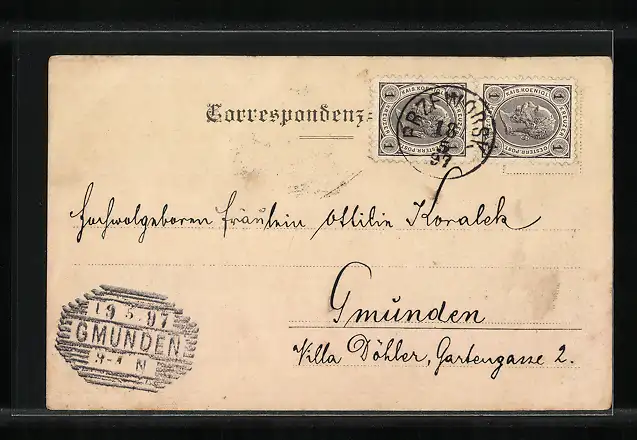 Correspondenz-
KAIS. KOENIGL. OESTERR. POST. KREUZER 1 1 1 1
KAIS. KOENIGL. OESTERR. POST. KREUZER 1 1 1 1
PRZEWORSK
18
5
97
Hochwolgeboren Fräulein Ottilie Koralek
Gmunden
Villa Döhler, Gartengasse 2.
19 5 97
GMUNDEN
N